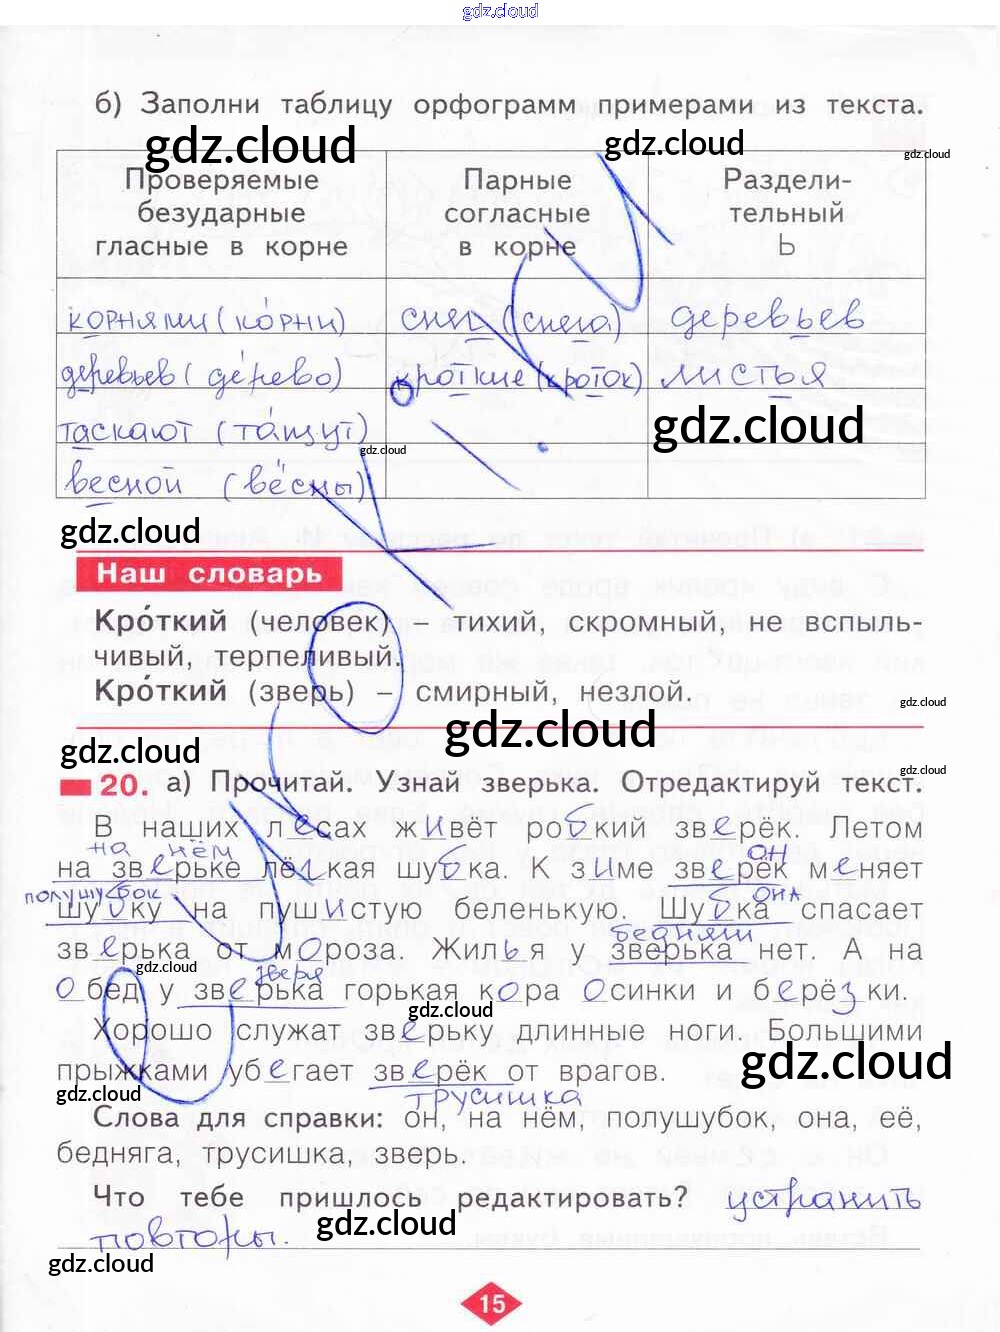 gdz.cloud
б) Заполни таблицу орфограмм примерами из текста.
gdz.cloud gdz.cloud gdz.cloud
Проверяемые безударные гласные в корне
Парные согласные в корне
Разделительный Ь
корнями (ко́рни) снег (снега) деревьев
деревьев (де́рево) кроткие (кроток) листья
таскают (та́щут)
gdz.cloud
gdz.cloud
весной (вёсны)
gdz.cloud
Наш словарь
Кро́ткий (человек) – тихий, скромный, не вспыль-
чивый, терпеливый.
Кро́ткий (зверь) – смирный, незлой.
gdz.cloud
gdz.cloud
gdz.cloud
gdz.cloud
20. а) Прочитай. Узнай зверька. Отредактируй текст.
В наших лесах живёт робкий зверёк. Летом
на нём он
на зверьке лёгкая шубка. К зиме зверёк меняет
полушубок она
шубку на пушистую беленькую. Шубка спасает
бедняги
зверька от мороза. Жилья у зверька нет. А на
gdz.cloud
зверя
обед у зверька горькая кора осинки и берёзки.
gdz.cloud
Хорошо служат зверьку длинные ноги. Большими
gdz.cloud
прыжками убегает зверёк от врагов.
gdz.cloud
трусишка
Слова для справки: он, на нём, полушубок, она, её,
бедняга, трусишка, зверь.
Что тебе пришлось редактировать? устранить
gdz.cloud
повторы.
gdz.cloud
15